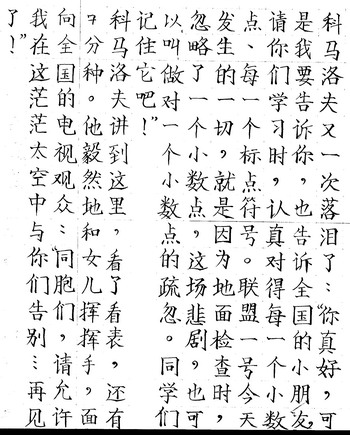 科马洛夫又一次落泪了：“你真好，可
是我要告诉你，也告诉全国的小朋友，
请你们学习时，认真对得每一个小数
点、每一个标点符号。联盟一号今天
发生的一切，就是因为地面检查时，
忽略了一个小数点，这场悲剧，也可
以叫做对一个小数点的疏忽。同学们
记住它吧！”
科马洛夫讲到这里，看了看表，还有
7分种。他毅然地和女儿挥挥手，面
向全国的电视观众：“同胞们，请允许
我在这茫茫太空中与你们告别…再见
了！”